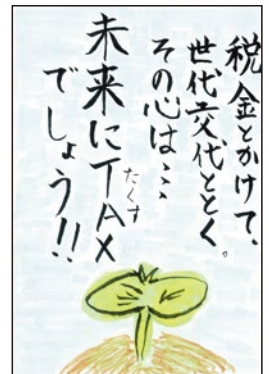 税金とかけて、
世代交代ととく。
その心は…
未来にTAX
たくす
でしょう!!